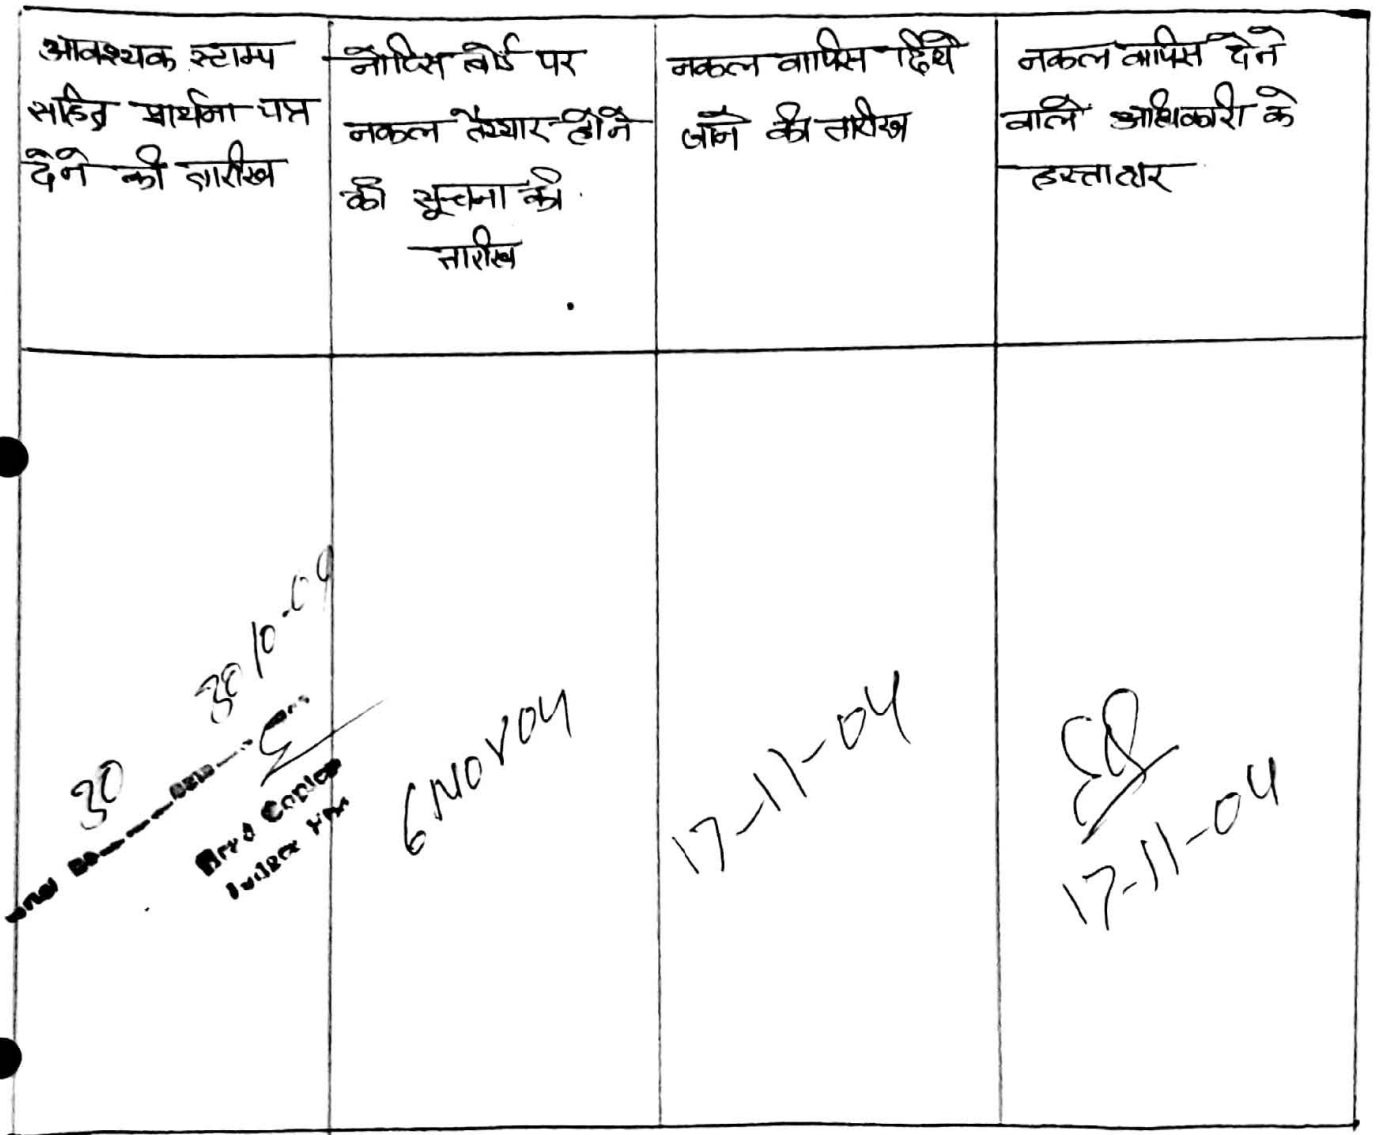 आवश्यक स्टाम्प
सहित प्रार्थना पत्र
देने की तारीख
नोटिस बोर्ड पर
नकल तैय्यार होने
की सूचना की
तारीख
नकल वापिस दिये
जाने की तारीख
नकल वापिस देने
वाले अधिकारी के
हस्ताक्षर
30
30 10-04
Head Copies
Judges
6 NOV 04
17-11-04
17-11-04